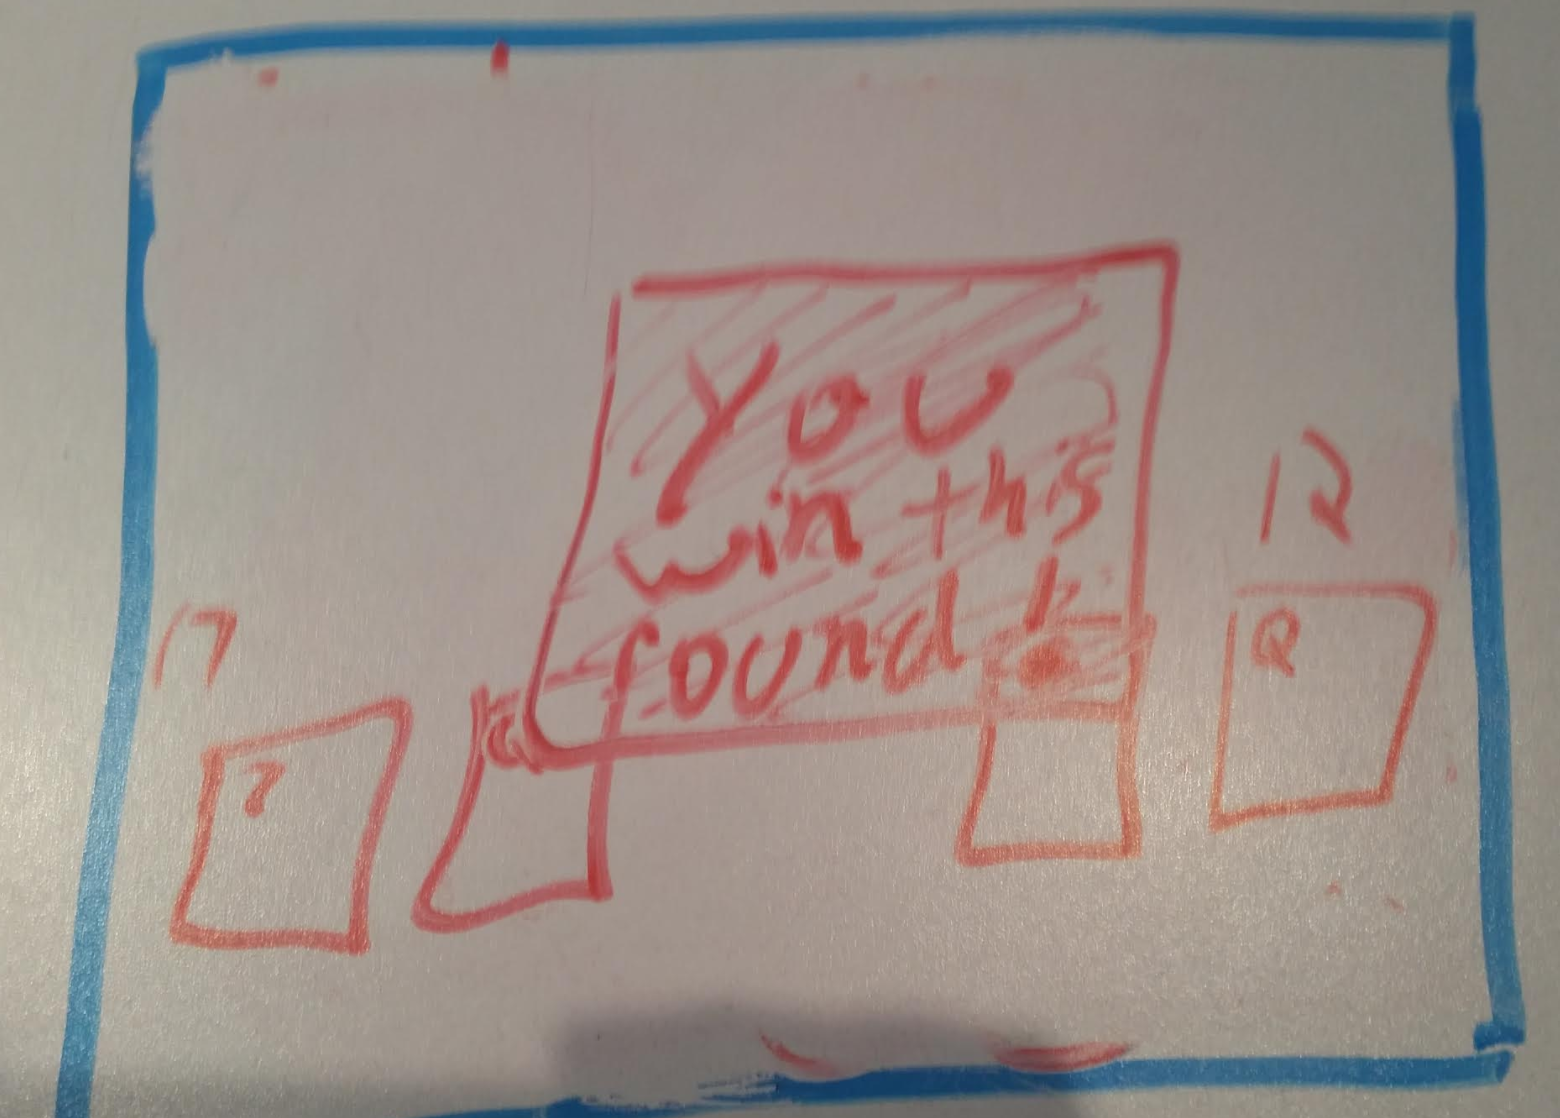 You
win this
found!
17
12
7
Q